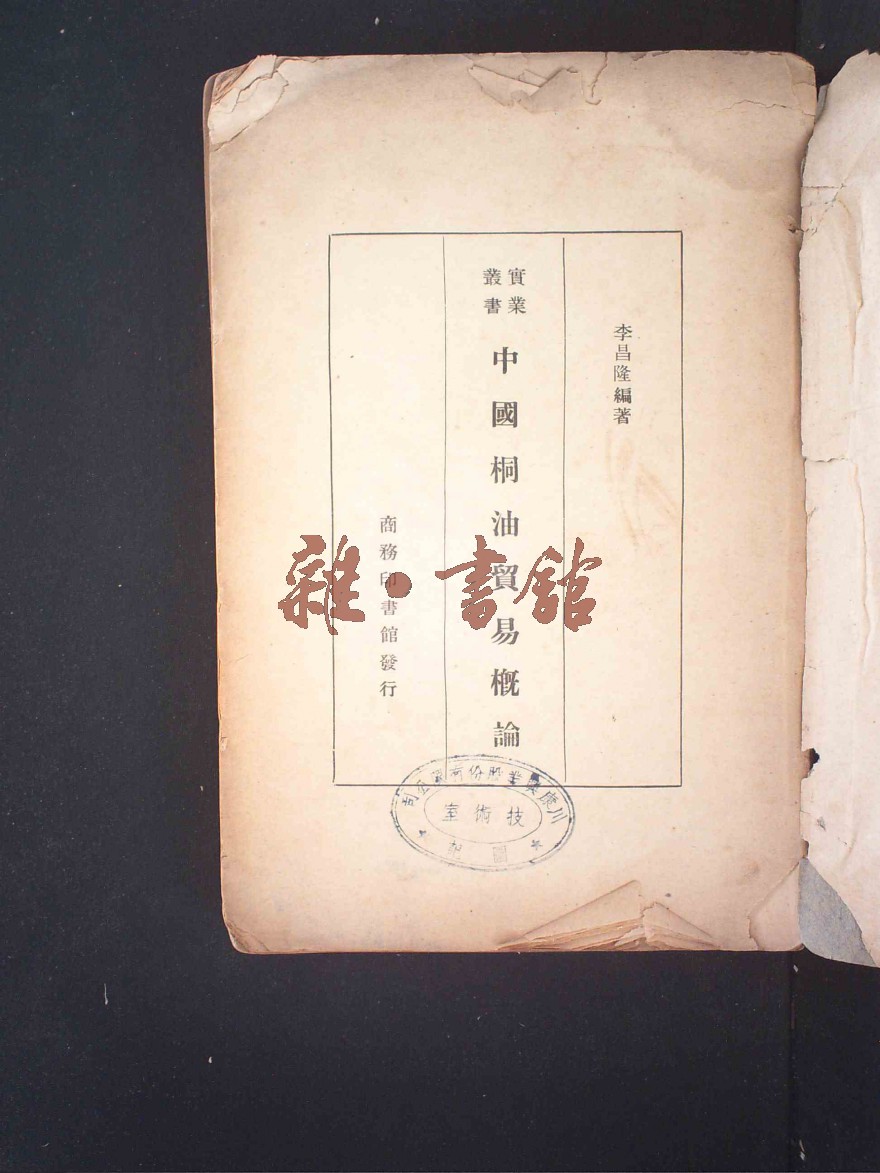 李昌隆編著
實業
叢書
中國桐油貿易概論
商務印書館發行
雜·書館
川康興業股份有限公司
技術室
圖記